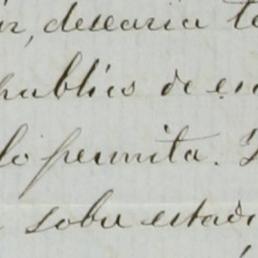 desearia
publico de
lo permita.
sobre estad